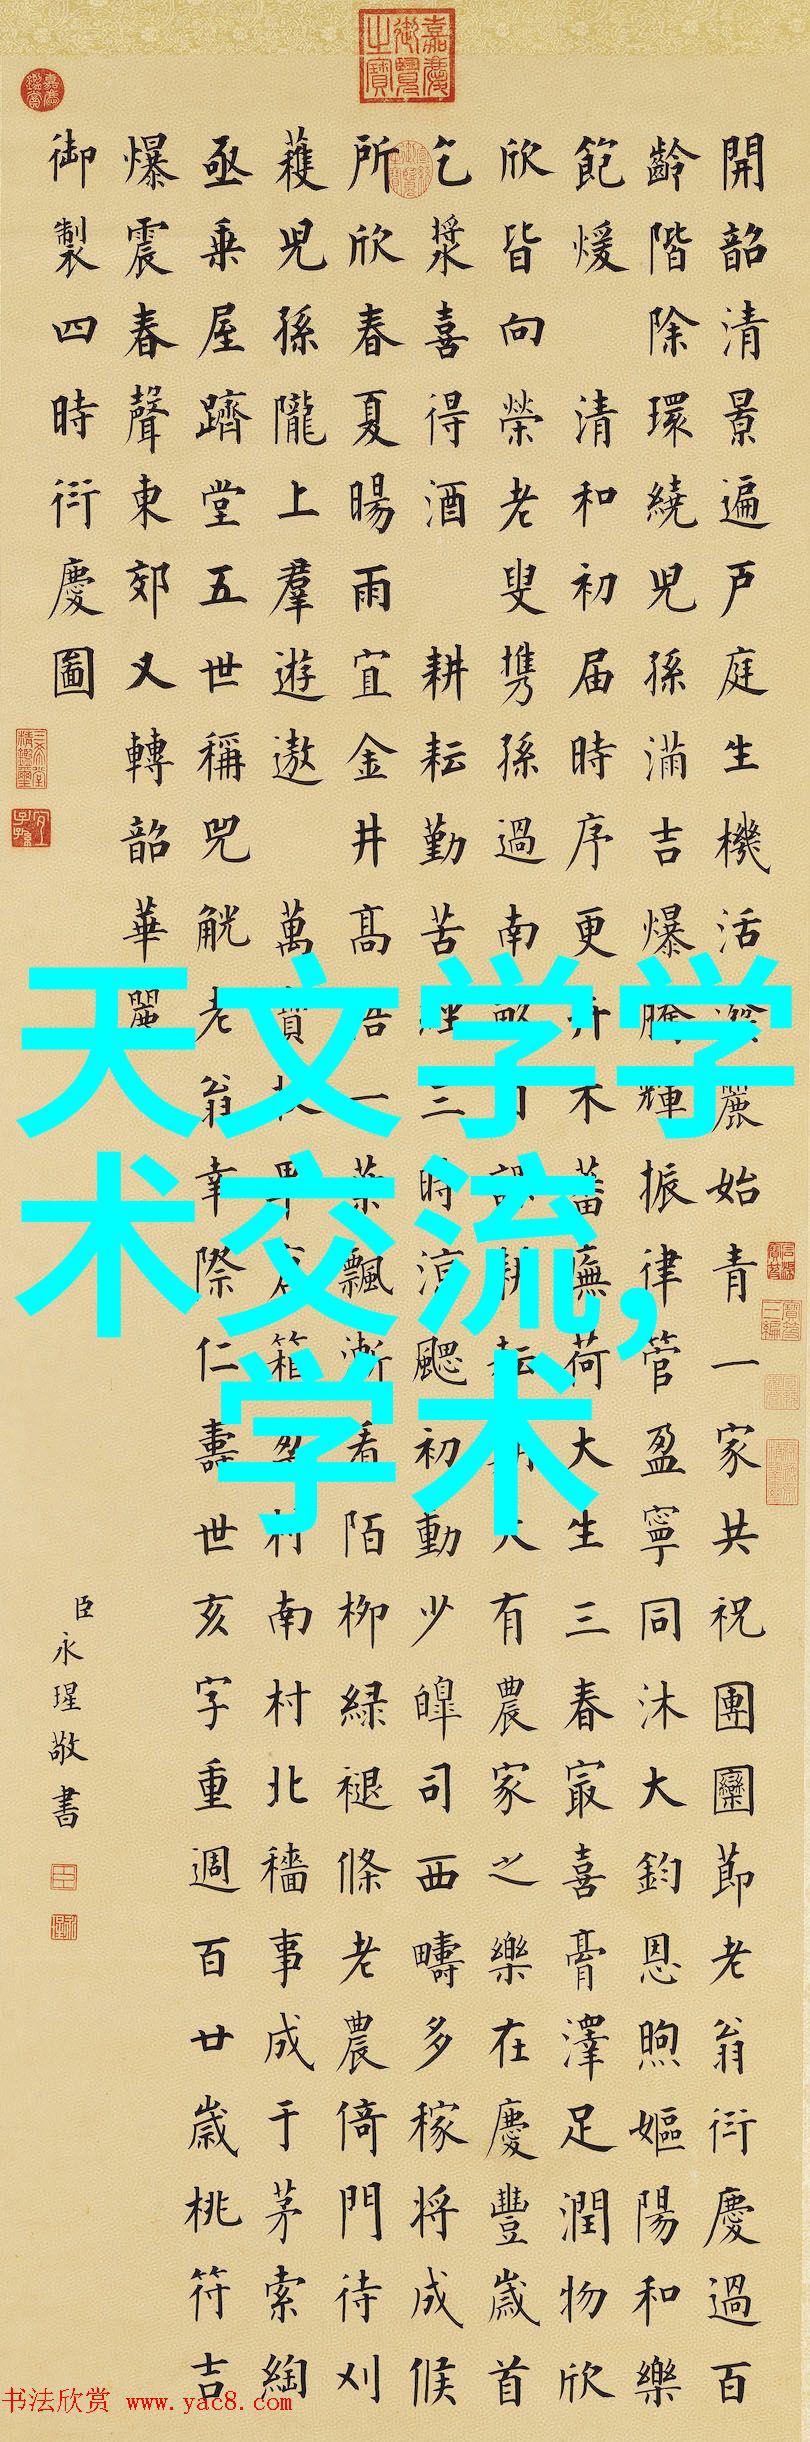 天文学学
术交流,
学术
開韶清景遍戶庭生機活潑麗始青一家共祝團圞節老翁衍慶過百
齡階除環繞兒孫滿吉爆騰輝振律管盈寧同沐大鈞恩煦嫗陽和樂
飽煖 清和初届時序更卉木蕃廡荷大生三春冣喜膏澤足潤物欣
欣皆向榮老叟携孫過南畝耕耘大有農家之樂在慶豐歲首
乞漿喜得酒 耕耘勤苦經三時涼颸初動少皞司西疇多稼將成候
所欣春夏暘雨宜金井高梧一葉飄漸看陌柳綠褪條老農倚門待刈
穫兒孫隴上羣遊遨 萬寶箱盈村南村北穡事成于茅索綯
亟乗屋躋堂五世稱兕觥老翁幸際仁壽世亥字重週百廿歲桃符吉
爆震春聲東郊又轉韶華麗
御製四時衍慶圖
臣永瑆敬書
嘉慶御覽之寶
嘉慶鑑賞
三希堂精鑑璽
宜子孫
书法欣赏 www.yac8.com